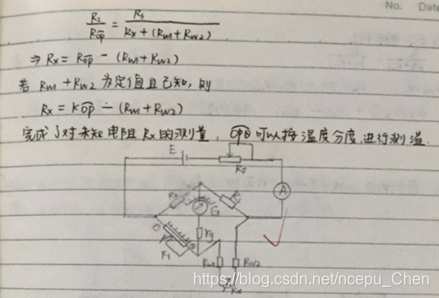 No. Date
R₂/R_OP = R₃/(Rx + (Rw1 + Rw2))
⇒ Rx = R_OP − (Rw1 + Rw2)
若 Rw1 + Rw2 为定值且已知, 则
Rx = K OP − (Rw1 + Rw2)
完成了对未知电阻 Rx 的测量, OP 可以按温度分度, 进行测温.
E
Rs
A
G
Rg
O
P
R1
Rw1
Rw2
Rx
https://blog.csdn.net/ncepu_Chen